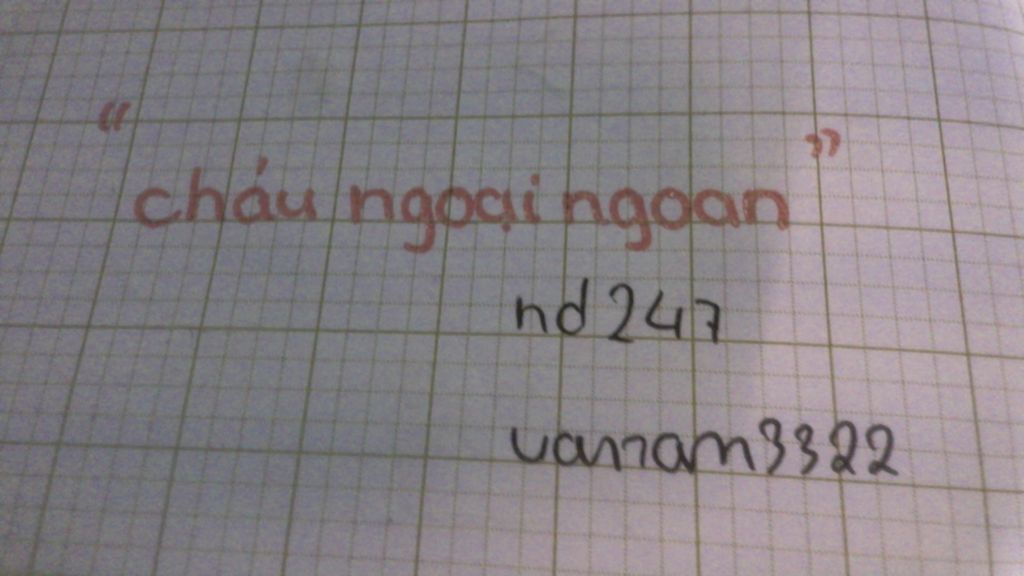 “cháu ngoại ngoan”
nd247
vannam3322